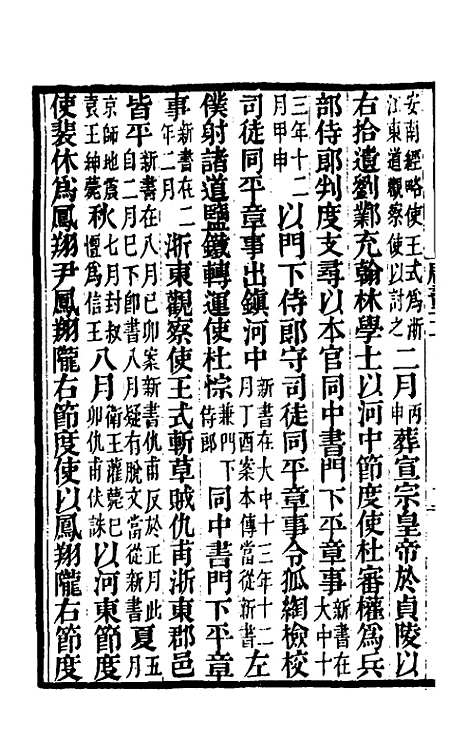 安南經略使王式為浙江東道觀察使以討之二月丙申葬宣宗皇帝於貞陵以
右拾遺劉鄴充翰林學士以河中節度使杜審權為兵
部侍郎判度支尋以本官同中書門下平章事新書在大中十
三年十二月甲申以門下侍郎守司徒同平章事令狐綯檢校
司徒同平章事出鎮河中新書在大中十三年十二月丁酉案本傳當從新書左
僕射諸道鹽鐵轉運使杜悰兼門下侍郎同中書門下平章
事新書在二年二月浙東觀察使王式斬草賊仇甫浙東郡邑
皆平新書在八月己卯案新書仇甫反於正月此自二月巳下卽書八月疑有脫文當從新書夏五月
京師地震袁王紳薨秋七月封叔為信王八月衛王灌薨己卯仇甫伏誅以河東節度
使裴休為鳳翔尹鳳翔隴右節度使以鳳翔隴右節度